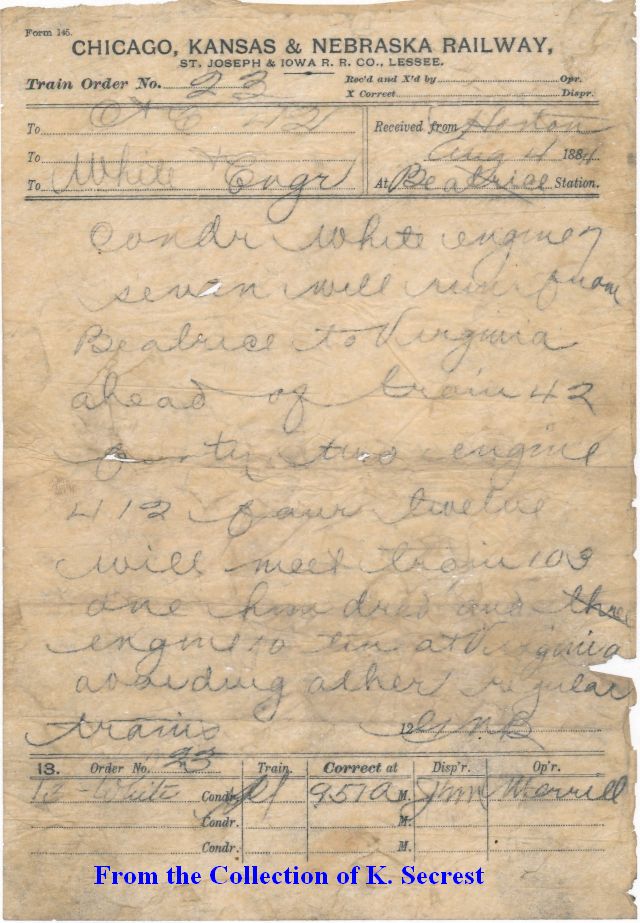 Form 145.
CHICAGO, KANSAS & NEBRASKA RAILWAY,
ST. JOSEPH & IOWA R. R. CO., LESSEE.
Train Order No. 23
Rec'd and X'd by Opr.
X Correct Dispr.
To C & E 42
To
To White & Engr
Received from Horton
Aug 4 188
At Beatrice Station.
Condr White engine 7
seven will run from
Beatrice to Virginia
ahead of train 42
forty two engine
412 four twelve
will meet train 103
one hundred and three
engine 10 ten at Virginia
avoiding other regular
trains
12
13. Order No. 23 Train. Correct at Disp'r. Op'r.
White Condr. 957 A M. Merrill
Condr. M.
Condr. M.
From the Collection of K. Secrest